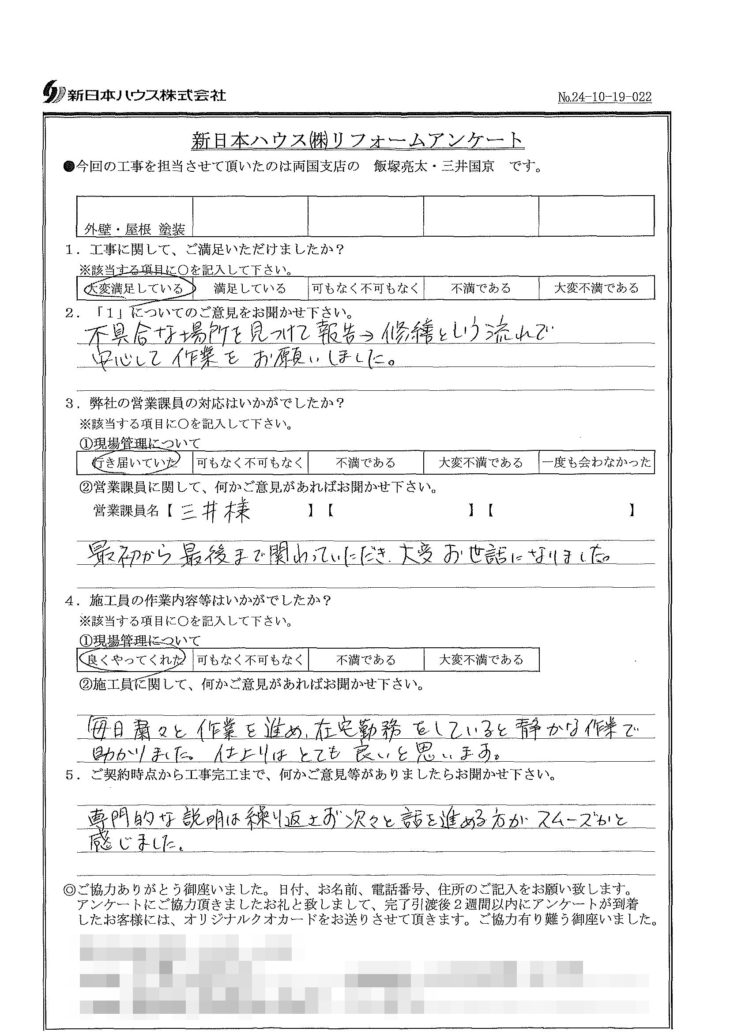 新日本ハウス株式会社
№24-10-19-022
新日本ハウス㈱リフォームアンケート
●今回の工事を担当させて頂いたのは両国支店の 飯塚亮太・三井国京 です。
外壁・屋根 塗装
1．工事に関して、ご満足いただけましたか？
※該当する項目に○を記入して下さい。
大変満足している 満足している 可もなく不可もなく 不満である 大変不満である
2．「1」についてのご意見をお聞かせ下さい。
不具合な場所を見つけて報告→修繕という流れで
安心して作業をお願いしました。
3．弊社の営業課員の対応はいかがでしたか？
※該当する項目に○を記入して下さい。
①現場管理について
行き届いていた 可もなく不可もなく 不満である 大変不満である 一度も会わなかった
②営業課員に関して、何かご意見があればお聞かせ下さい。
営業課員名【 三井様 】【 】【 】
最初から最後まで関わっていただき、大変お世話になりました。
4．施工員の作業内容等はいかがでしたか？
※該当する項目に○を記入して下さい。
①現場管理について
良くやってくれた 可もなく不可もなく 不満である 大変不満である
②施工員に関して、何かご意見があればお聞かせ下さい。
毎日粛々と作業を進め、在宅勤務をしていると静かな作業で
助かりました。仕上りはとても良いと思います。
5．ご契約時点から工事完工まで、何かご意見等がありましたらお聞かせ下さい。
専門的な説明は繰り返さず次々と話を進める方がスムーズかと
感じました。
◎ご協力ありがとう御座いました。日付、お名前、電話番号、住所のご記入をお願い致します。
アンケートにご協力頂きましたお礼と致しまして、完了引渡後2週間以内にアンケートが到着
したお客様には、オリジナルクオカードをお送りさせて頂きます。ご協力有り難う御座いました。